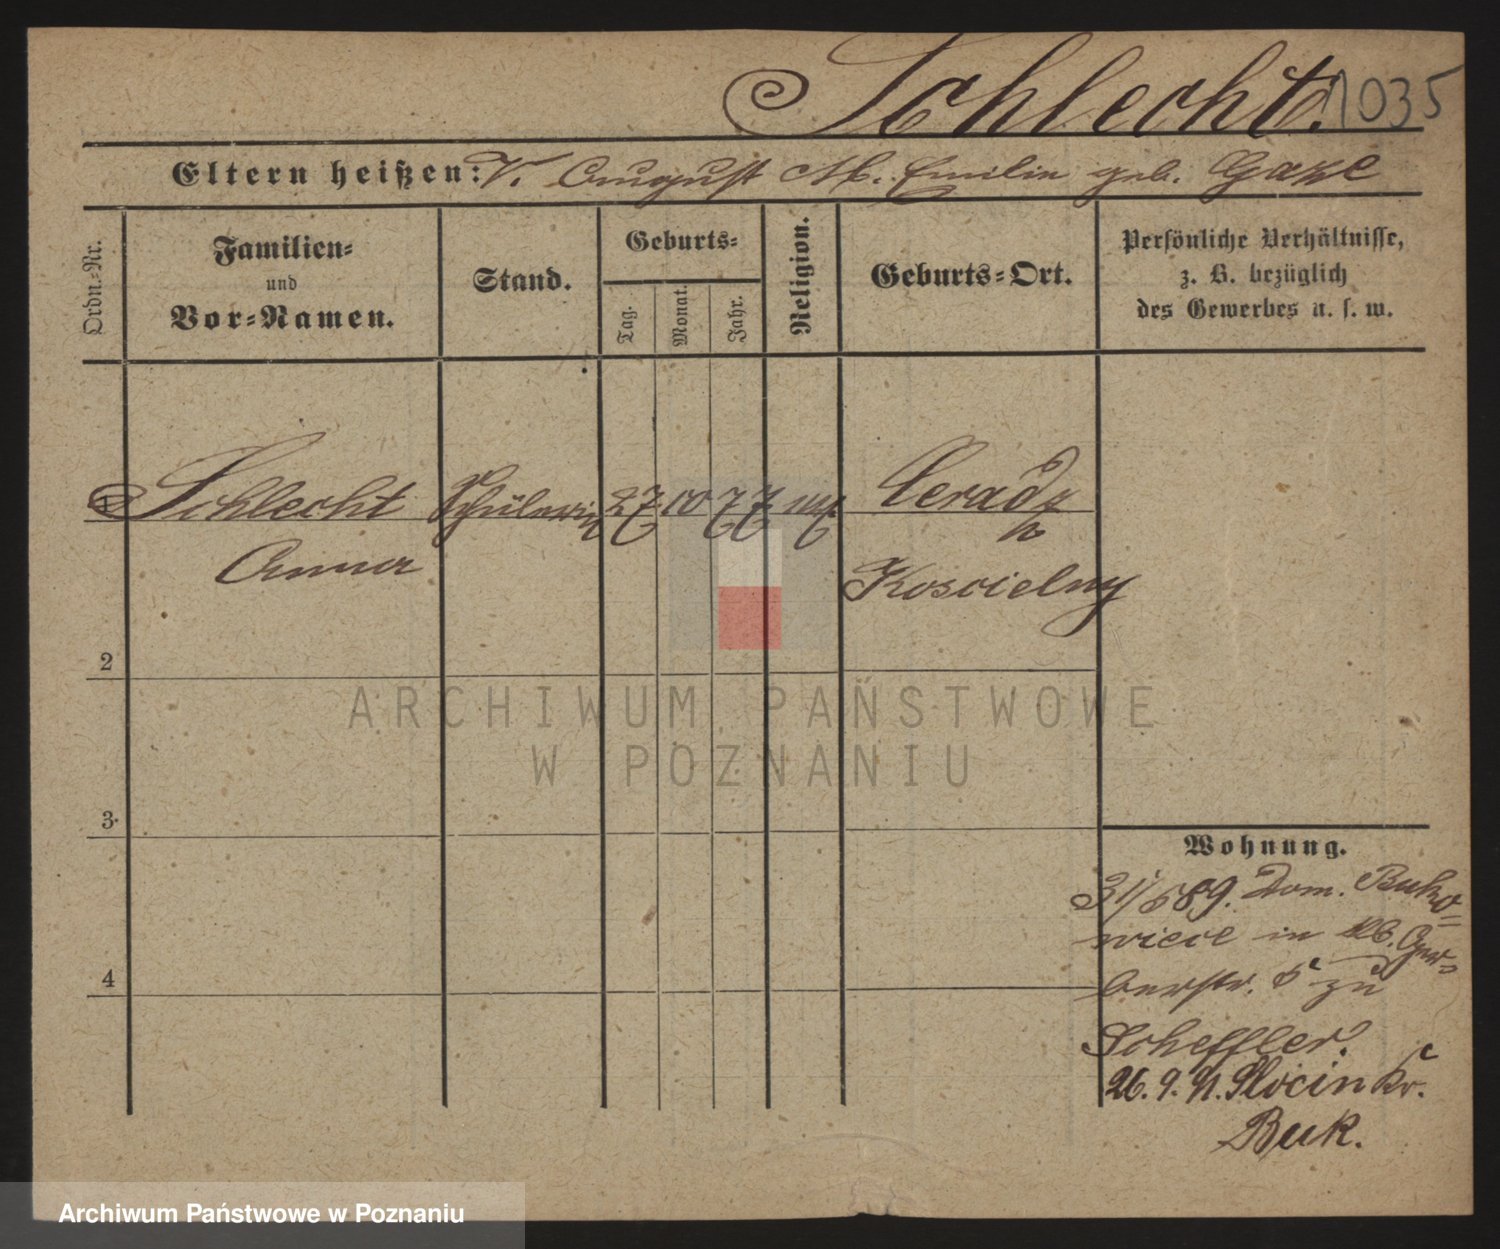 Schlecht. 1035
Eltern heißen: V. August M. Emilie geb. Gaze
Ordn.-Nr.
Familien-
und
Vor-Namen.
Stand.
Geburts-
Tag.
Monat.
Jahr.
Religion.
Geburts-Ort.
Persönliche Verhältnisse,
z. B. bezüglich
des Gewerbes u. s. w.
1 Schlecht Schülerin 27 10 77 Ceradz
Anna Koscielny
2
3
4
Wohnung.
31/5 89. Dom. Buko-
wiece in Ger-
berstr. 5 zu
Scheffler.
26. 9. 91. Slocin Kr.
Buk.
ARCHIWUM PAŃSTWOWE
W POZNANIU
Archiwum Państwowe w Poznaniu